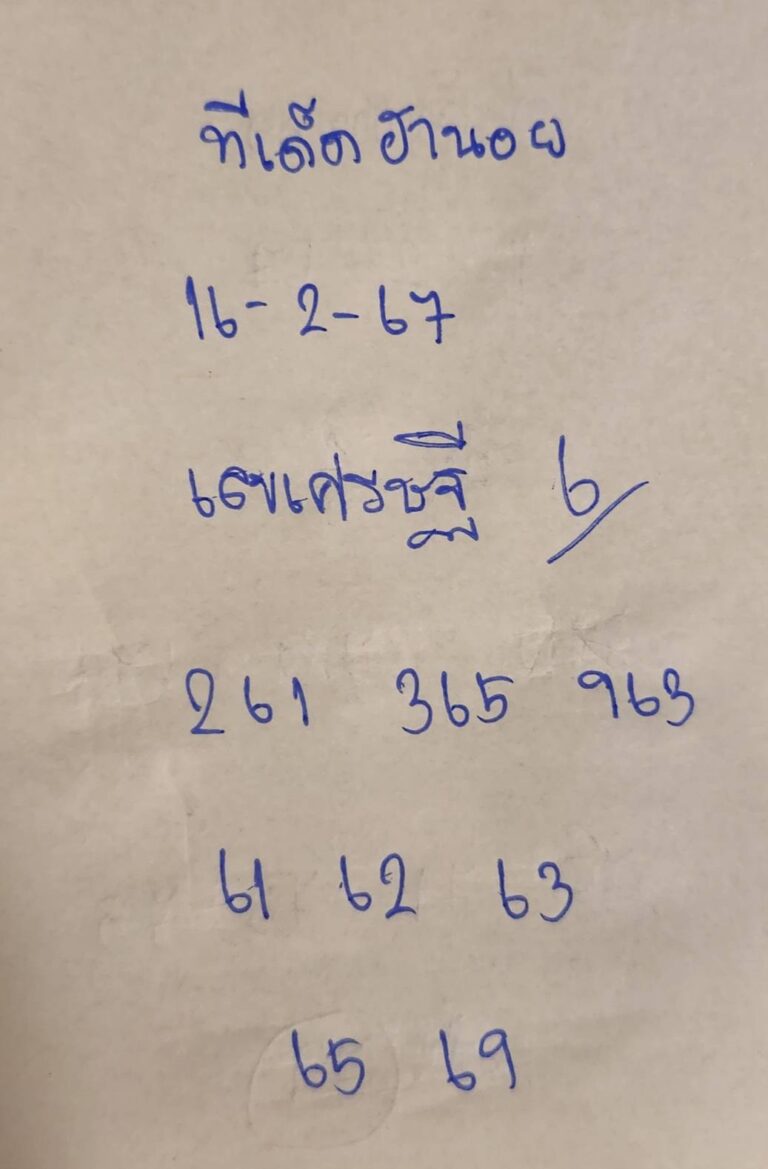 ทีเด็ด ฮานอย
16-2-67
เลขเศรษฐี 6/
261 365 963
61 62 63
65 69